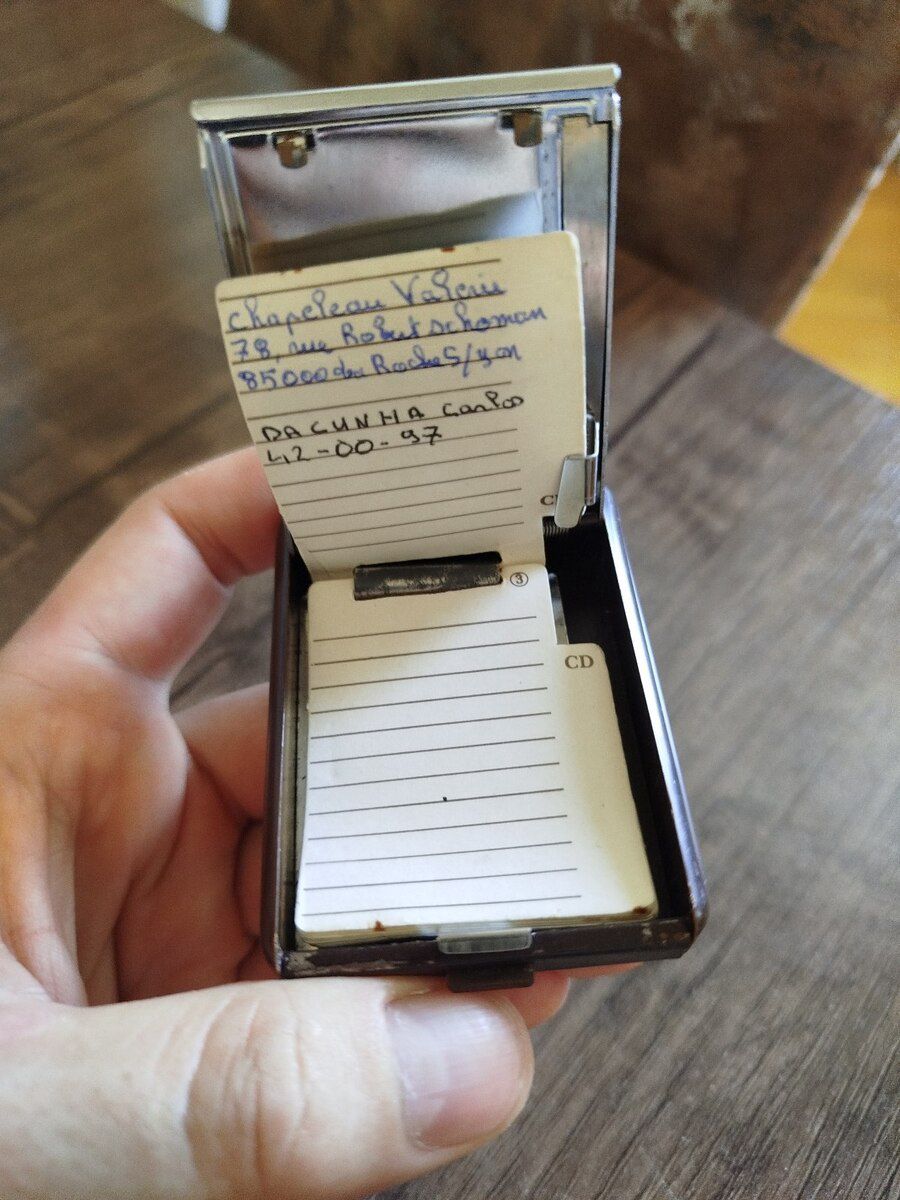 Chapeleau Valerie
78, rue Robert Schoman
85000 La Roche S/yon
DA CUNHA Carlos
42-00-97
③
CD